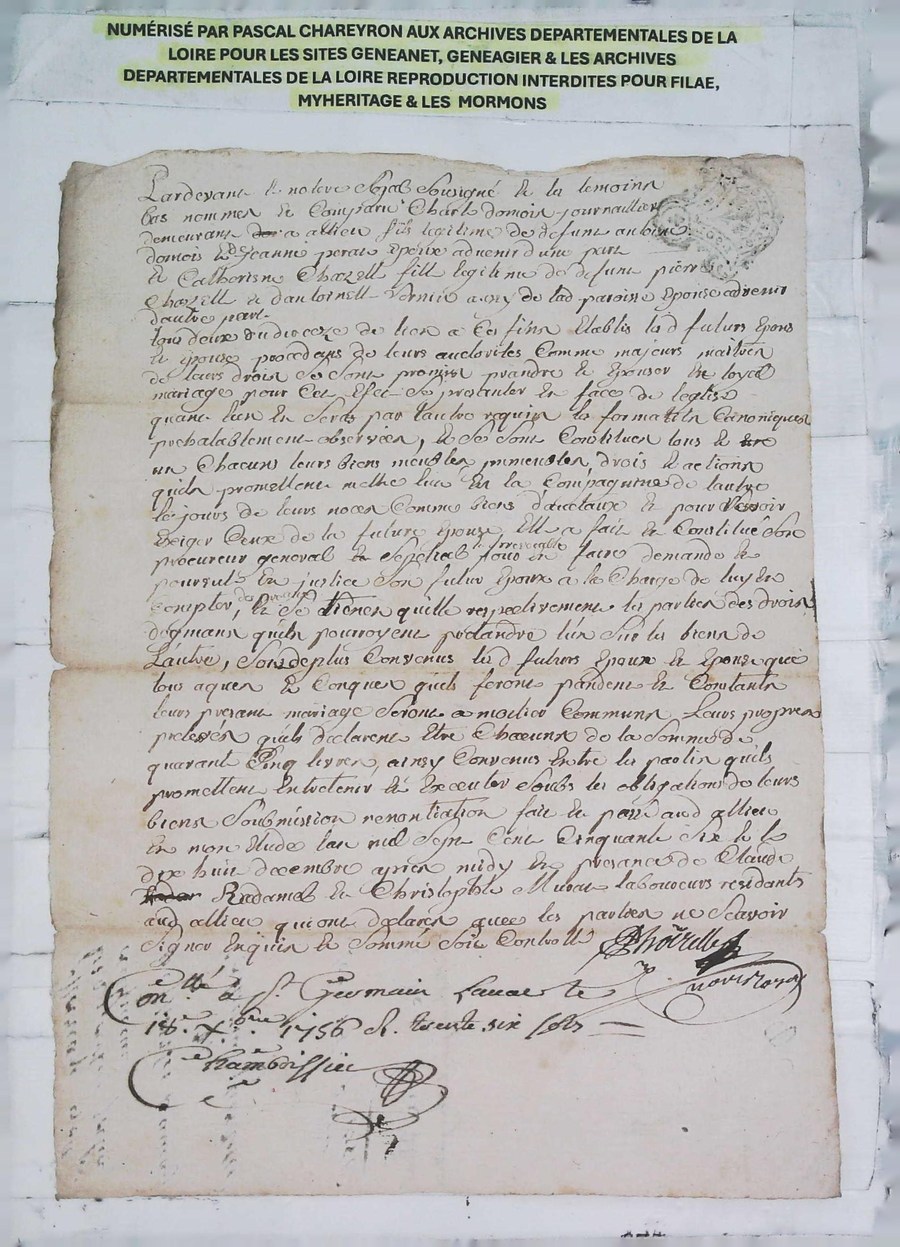 NUMÉRISÉ PAR PASCAL CHAREYRON AUX ARCHIVES DEPARTEMENTALES DE LA
LOIRE POUR LES SITES GENEANET, GENEAGIER & LES ARCHIVES
DEPARTEMENTALES DE LA LOIRE REPRODUCTION INTERDITES POUR FILAE,
MYHERITAGE & LES MORMONS
Pardevant le notere Royal Sousigné et les temoins
bas nommes et Comparu Charle domois journallier
demeurant a allieu fils legitime de defunt antoine
domois et Jeanne perat Epoux advenir d'une part
et Catherisne Chazell fille legitime de defunt pierre
Chazell et d'antoinett Vernie aussy de lad paroisse Epouse advenir
d'autre part
tous deux du dioceze de lion a Ces fins Etablis lesd futurs Epoux
et epouse procedans de leurs authorites Comme majeurs maitres
de leurs drois Se Sont promis prandre et Epouser en loyal
mariage pour Cet Efet Se presanter en face de leglise
quant l'un en Sera par l'autre requis les formalites Canoniques
prehalablement observées, et Se Sont Constitues tous et
un Chacuns leurs biens meubles immeubles, drois et actions
quils promettent mettre l'un En la Compagnie de l'autre
le jours de leurs noces Comme biens et pour
Exiger Ceux de la future Epouse Elle a fait et Constitué Son
procureur general et Special faire demande et
poursuite En justice Son futur Epoux a la Charge de luy En
Compter, et Se respectivement les parties des drois
quils pourroyent pretandre l'un Sur les biens de
L'autre, Sont deplus Convenus lesd futurs Epoux et Epouse que
tous aquets et Conques quils feront pandent et Constants
leurs presant mariage Seront a moitier Communs Leurs propres
quils declarent Etre Chacuns de la Somme de
quarant Cinq livres, ainsy Convenus Entre les partis quils
promettent Entretenir et Executer Soubs les obligations de leurs
biens Soubmission renontiation fait et passé aud allieu
En mon Etude lan mil Sept Cent Cinquante Six et le
dix huit decembre apres midy En presance de Claude
et Christophle laboureurs residants
aud allieu qui ont declarés avec les parties ne Scavoir
Signer Enquis et Sommé Soit Controllé
nore Royal
Con.llé a St Germain Laval le
18e Xbre 1756 R. trente six sols